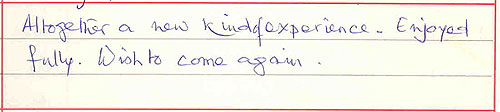 Altogether a new kind of experience. Enjoyed
fully. Wish to come again.